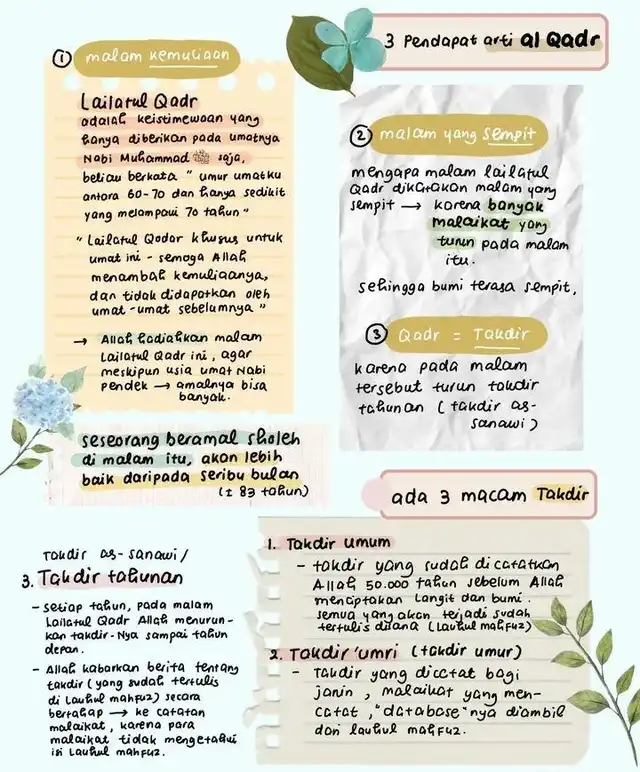 3 Pendapat arti al Qadr
1 malam kemuliaan
Lailatul Qadr
adalah keistimewaan yang
hanya diberikan pada umatnya
Nabi Muhammad ﷺ saja,
beliau berkata " umur umatku
antara 60-70 dan hanya sedikit
yang melampaui 70 tahun"
" Lailatul Qodar khusus untuk
umat ini - semoga Allah
menambah kemuliaanya,
dan tidak didapatkan oleh
umat-umat sebelumnya "
→ Allah hadiahkan malam
Lailatul Qadr ini, agar
meskipun usia umat Nabi
pendek → amalnya bisa
banyak.
seseorang beramal sholeh
di malam itu, akan lebih
baik daripada seribu bulan
(± 83 tahun)
2 malam yang sempit
mengapa malam lailatul
Qadr dikatakan malam yang
sempit → karena banyak
malaikat yang
turun pada malam
itu.
sehingga bumi terasa sempit.
3 Qadr = Takdir
karena pada malam
tersebut turun takdir
tahunan (takdir as-
sanawi)
ada 3 macam Takdir
1. Takdir umum
- takdir yang sudah dicatatkan
Allah 50.000 tahun sebelum Allah
menciptakan langit dan bumi.
semua yang akan terjadi sudah
tertulis disana (lauhul mahfuz)
2. Takdir 'umri (takdir umur)
- Takdir yang dicatat bagi
janin, malaikat yang men-
catat, "database"nya diambil
dari lauhul mahfuz.
Takdir as-sanawi/
3. Takdir tahunan
- setiap tahun, pada malam
Lailatul Qadr Allah menurun-
kan takdir-Nya sampai tahun
depan.
- Allah kabarkan berita tentang
takdir (yang sudah tertulis
di Lauhul mahfuz) secara
bertahap → ke catatan
malaikat, karena para
malaikat tidak mengetahui
isi Lauhul mahfuz.